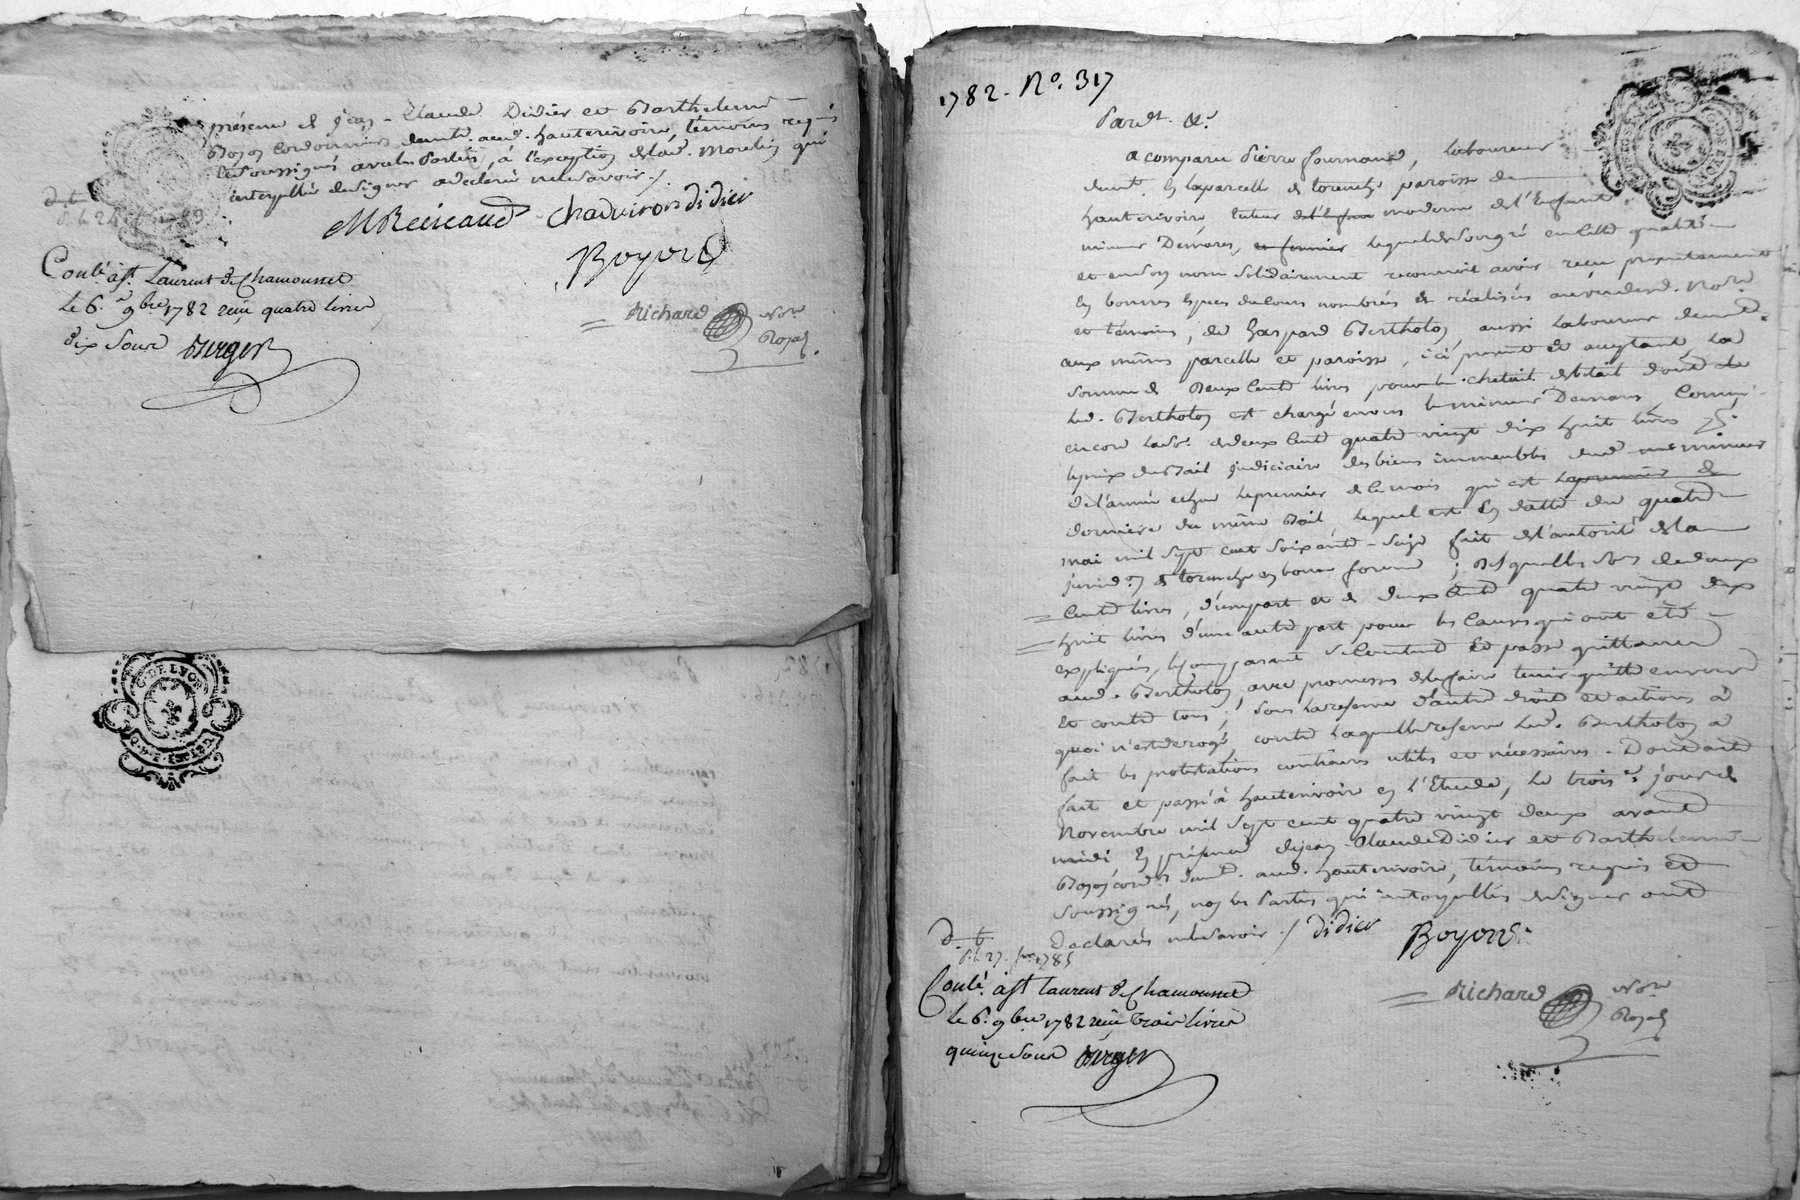 présence de Jean-Claude Didier et Barthelemi
Boyon cordonnier demt. aud. hauterivoire, temoins requis
et soussignés avec les parties, à l'exception de lad. Morelin qui
interpellée de signer a declaré ne le savoir ./
MReireaud Chadviron didier
Boyond
Richard Nore
Royal
d. t.
Conlé. à st. Laurent de Chamousset
le 6e. 9bre 1782 reçu quatre livres
dix sous Berger
G. DE LYON
1782. No. 317
Pardt. &c.
a comparu Pierre fournand, laboureur
demt. en la parcelle de torenche paroisse de
hauterivoire, tuteur de l'Enfant moderne de l'Enfant
mineur Demares, et fermier lequel de son gré en cette qualité
et en son nom solidairement reconnoit avoir reçu presentement
en bonnes especes de cours nombrées et réalisées au vu dud. Nore.
et témoins, de Gaspard Bertholon, aussi laboureur demt.
aux mêmes parcelle et paroisse, ici présent et acceptant, la
somme de deux cents livres pour le cheteil de bétail dont
led. Bertholon est chargé envers le mineur Demares, comme
encore la so. de deux cent quatre vingt dix huit livres
le prix du Bail judiciaire des biens immeubles dud. mineur
de l'année echue le premier de ce mois qui est la premiere de
derniere du même Bail, lequel est en datte du quatre
mai mil sept cent soixante-seize fait de l'autorité de la
jurid.on de torenche en bonne forme; desquelles so.es de deux
cents livres, d'une part et de deux cent quatre vingt dix
huit livres d'une autre part pour les causes qui ont été
expliquées, le comparant se contente et passe quittance
aud. Bertholon, avec promesse de le faire tenir quitte envers
et contre tous, sans la reserve d'autre droits et actions à
quoi n'est derogé, contre laquelle reserve led. Bertholon a
fait les protestations contraires utiles et nécessaires. Dont acte
fait et passé à hauterivoire en l'Etude, le trois.e jour de
Novembre mil sept cent quatre vingt deux avant
midi en présence de jean-Claude Didier et Barthelemi
Boyon cord.er demt. aud. hauterivoire, témoins requis et
soussignés, non les parties qui interpellées de signer ont
declarés ne le savoir ./ didier Boyond
Richard Nore
Royal
d. t.
Conlé. à st. laurent de Chamousset
le 6e. 9bre 1782 reçu trois livres
quinze sous Berger